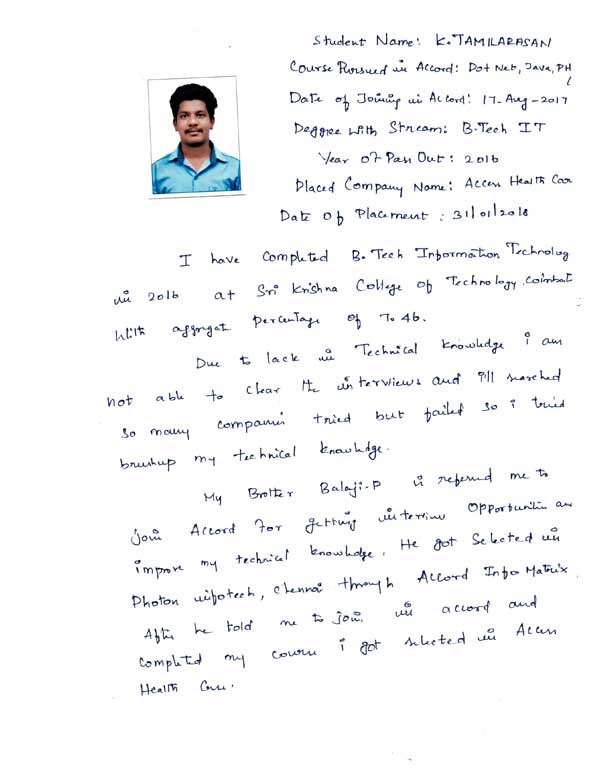 Student Name: K. TAMILARASAN
Course Pursued in Accord: Dot Net, Java, PH
Date of Joining in Accord: 17-Aug-2017
Deggree With Stream: B.Tech IT
Year of Pass Out: 2016
Placed Company Name: Access Health Car
Date of Placement: 31/01/2018
I have completed B.Tech Information Technolog
in 2016 at Sri Krishna College of Technology, Coimbat
With aggrigate percentage of 7.46.
Due to lack in Technical knowledge i am
not able to clear the interviews and i'll searched
So many companies tried but failed so i tried
brushup my technical knowledge.
My Brother Balaji.P is referred me to
join Accord For getting interview Opportunities an
improve my technical knowledge. He got Selected in
Photon infotech, Chennai through Accord Info Matrix.
After he told me to join in accord and
Completed my course i got selected in Access
Health Care.